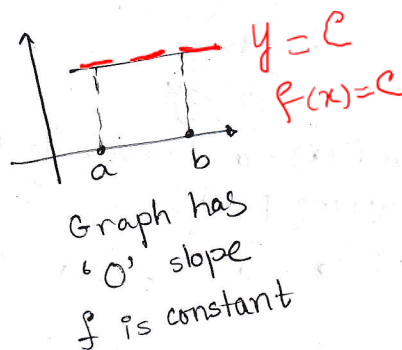 y = C
f(x) = C
a
b
Graph has
'0' slope
f is constant